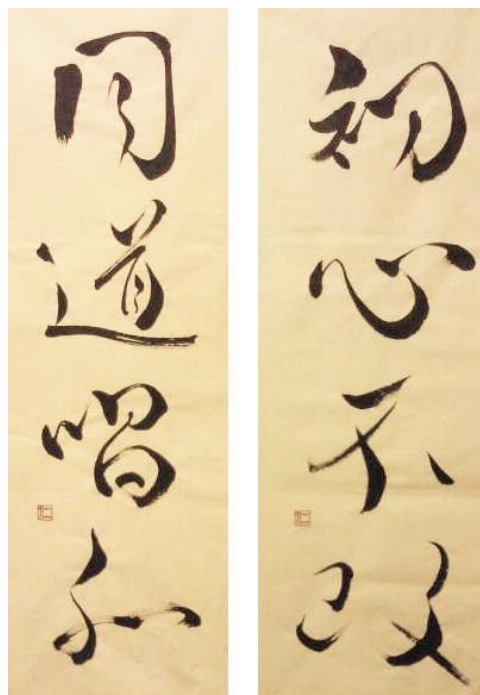 初心不改
同道唱和